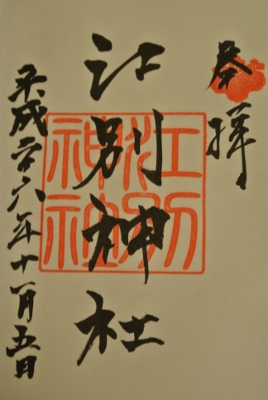 奉拝
江別神社
江別神社
平成二六年十一月五日